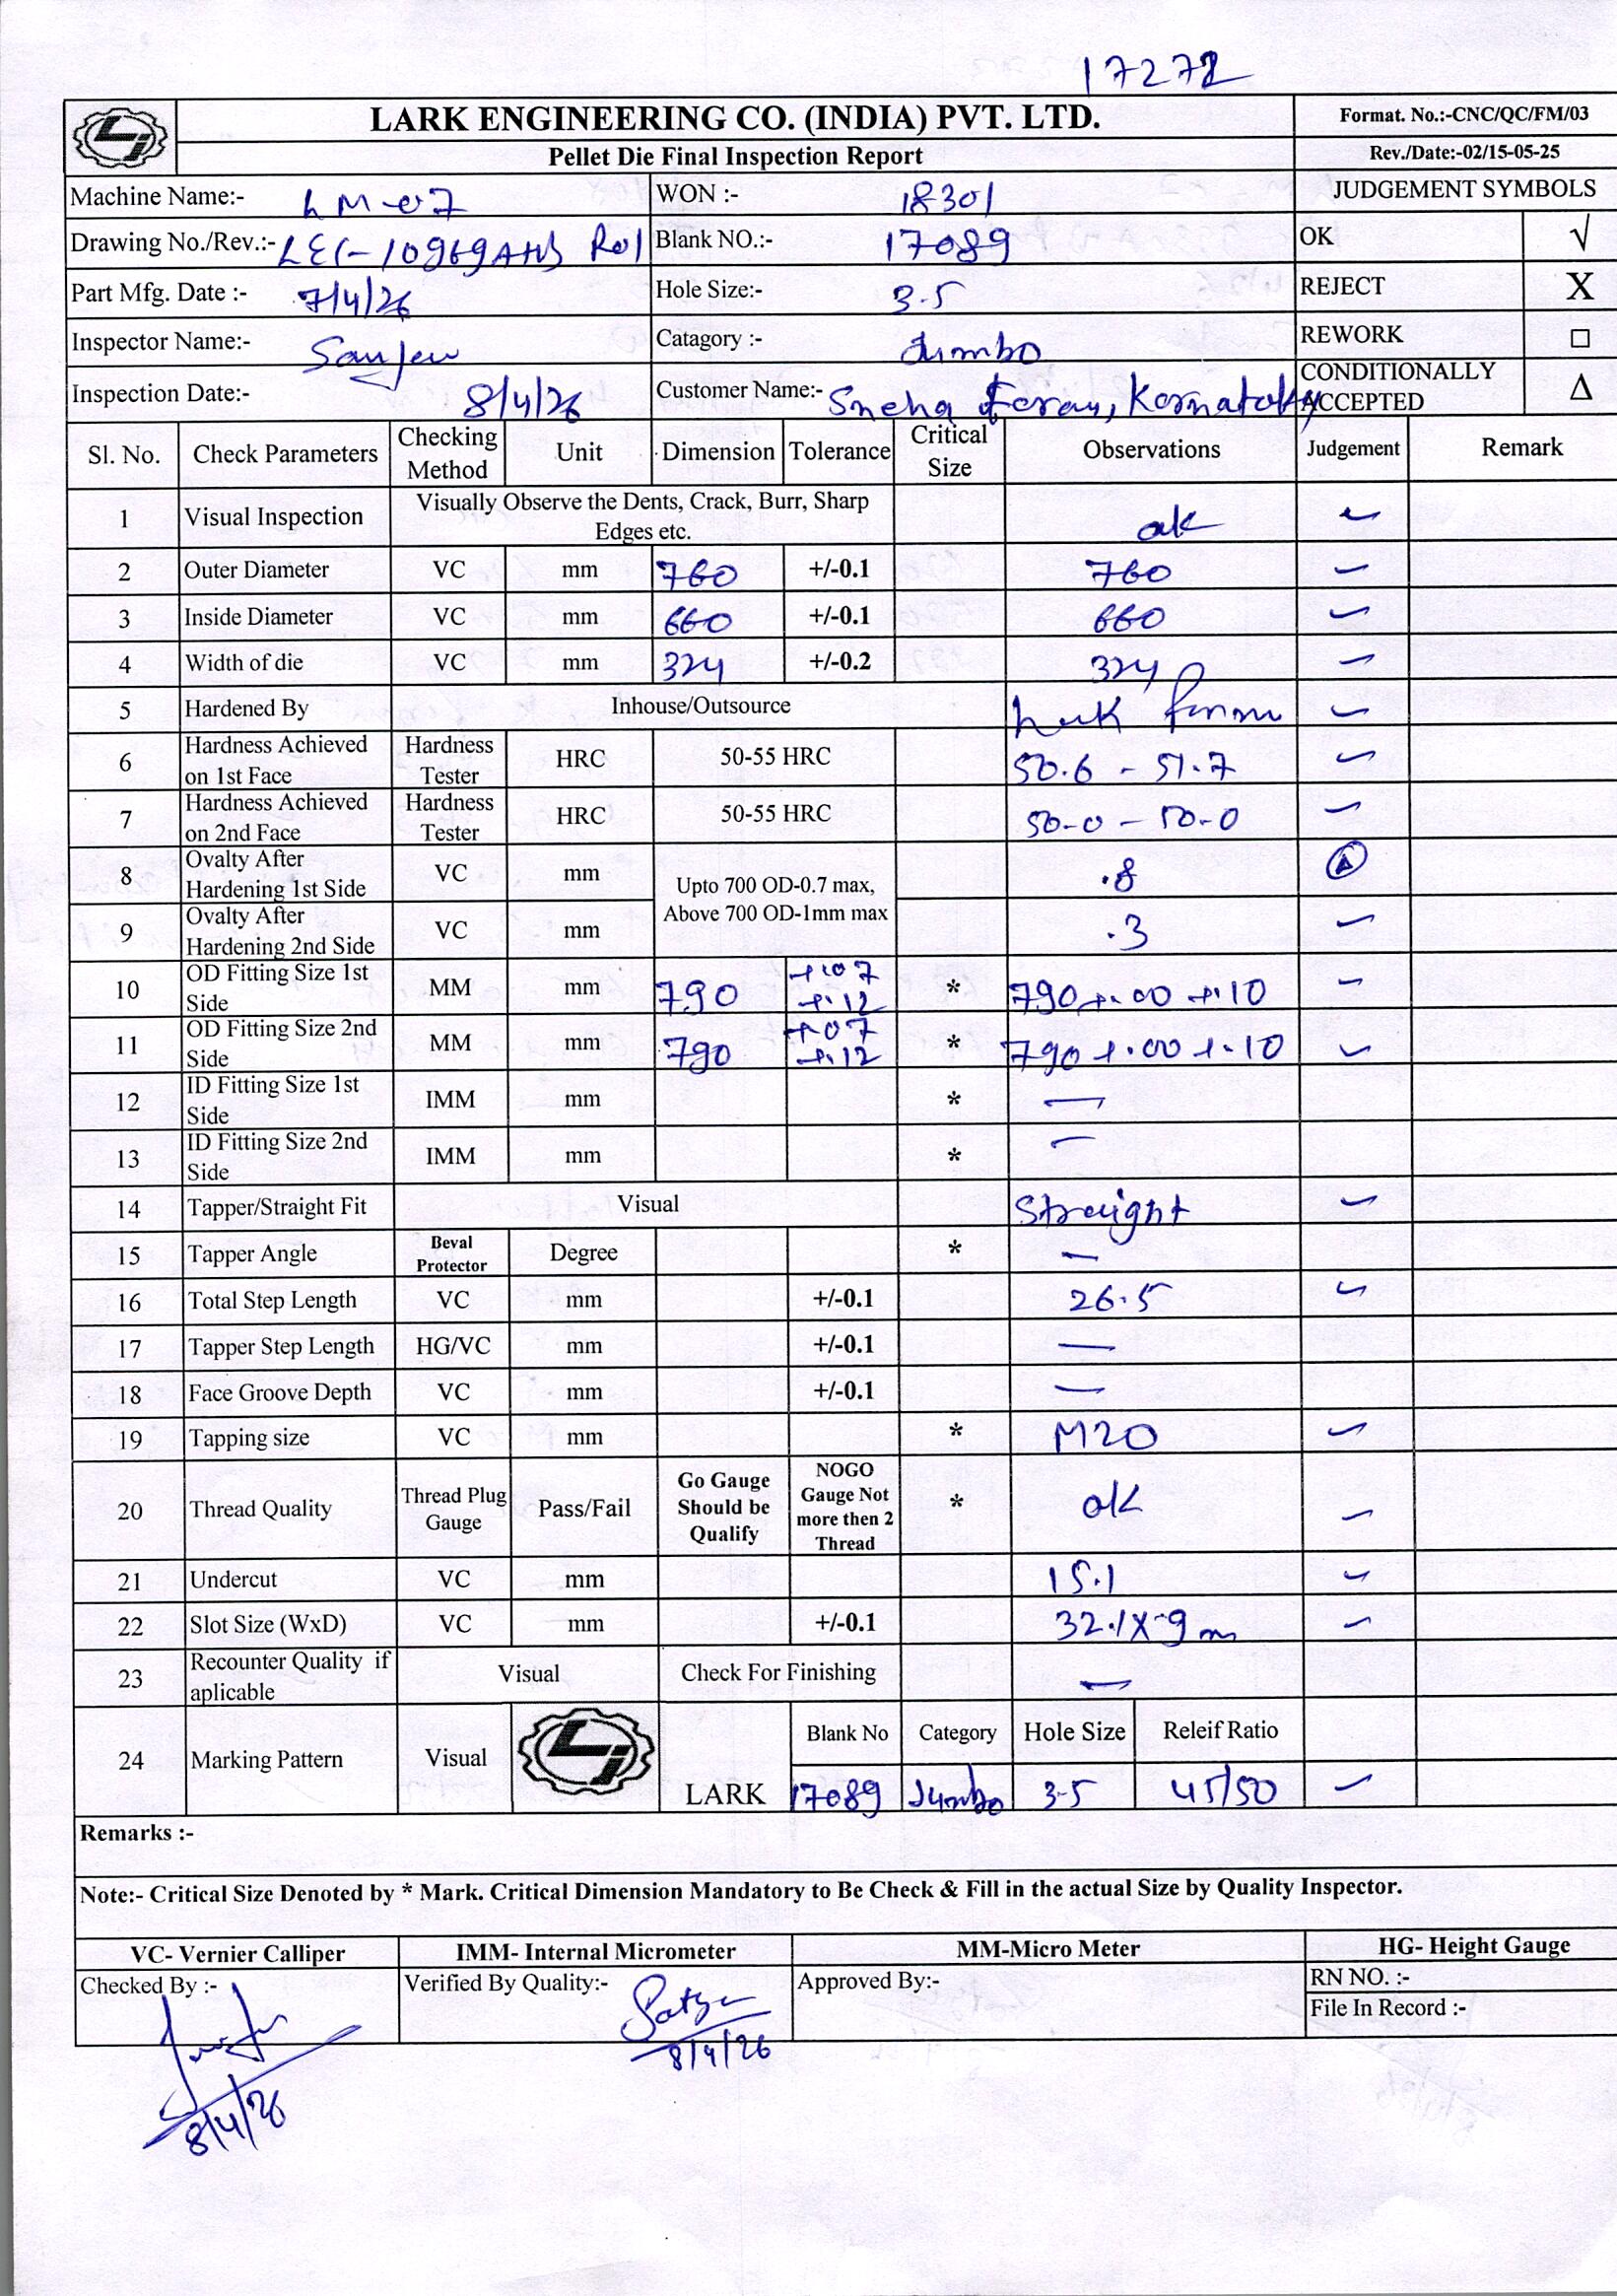 17272
LARK ENGINEERING CO. (INDIA) PVT. LTD.
Format. No.:-CNC/QC/FM/03
Pellet Die Final Inspection Report
Rev./Date:-02/15-05-25
Machine Name:- LM-07 WON :- 18301 JUDGEMENT SYMBOLS
Drawing No./Rev.:- LEC-10969AHB R01 Blank NO.:- 17089 OK √
Part Mfg. Date :- 7/4/26 Hole Size:- 3.5 REJECT X
Inspector Name:- Sanjeev Catagory :- Jumbo REWORK □
Inspection Date:- 8/4/26 Customer Name:- Sneha Karnataka CONDITIONALLY ACCEPTED Δ
Sl. No. Check Parameters Checking Method Unit Dimension Tolerance Critical Size Observations Judgement Remark
1 Visual Inspection Visually Observe the Dents, Crack, Burr, Sharp Edges etc. ok ✓
2 Outer Diameter VC mm 760 +/-0.1 760 ✓
3 Inside Diameter VC mm 660 +/-0.1 660 ✓
4 Width of die VC mm 324 +/-0.2 324 ✓
5 Hardened By Inhouse/Outsource ✓
6 Hardness Achieved on 1st Face Hardness Tester HRC 50-55 HRC 50.6 - 51.7 ✓
7 Hardness Achieved on 2nd Face Hardness Tester HRC 50-55 HRC 50-0 - 50-0 ✓
8 Ovalty After Hardening 1st Side VC mm Upto 700 OD-0.7 max, Above 700 OD-1mm max .8 Δ
9 Ovalty After Hardening 2nd Side VC mm .3 ✓
10 OD Fitting Size 1st Side MM mm 790 +.07 +.12 * 790 +.00 +.10 ✓
11 OD Fitting Size 2nd Side MM mm 790 +.07 +.12 * 790 +.00 +.10 ✓
12 ID Fitting Size 1st Side IMM mm * —
13 ID Fitting Size 2nd Side IMM mm * —
14 Tapper/Straight Fit Visual Straight ✓
15 Tapper Angle Beval Protector Degree * —
16 Total Step Length VC mm +/-0.1 26.5 ✓
17 Tapper Step Length HG/VC mm +/-0.1 —
18 Face Groove Depth VC mm +/-0.1 —
19 Tapping size VC mm * M20 ✓
20 Thread Quality Thread Plug Gauge Pass/Fail Go Gauge Should be Qualify NOGO Gauge Not more then 2 Thread * ok ✓
21 Undercut VC mm 15.1 ✓
22 Slot Size (WxD) VC mm +/-0.1 32.1X9 ✓
23 Recounter Quality if aplicable Visual Check For Finishing —
24 Marking Pattern Visual LARK Blank No Category Hole Size Releif Ratio
17089 Jumbo 3.5 45/50 ✓
Remarks :-
Note:- Critical Size Denoted by * Mark. Critical Dimension Mandatory to Be Check & Fill in the actual Size by Quality Inspector.
VC- Vernier Calliper IMM- Internal Micrometer MM-Micro Meter HG- Height Gauge
Checked By :- Verified By Quality:- Satya Approved By:- RN NO. :-
File In Record :-
8/4/26
8/4/26